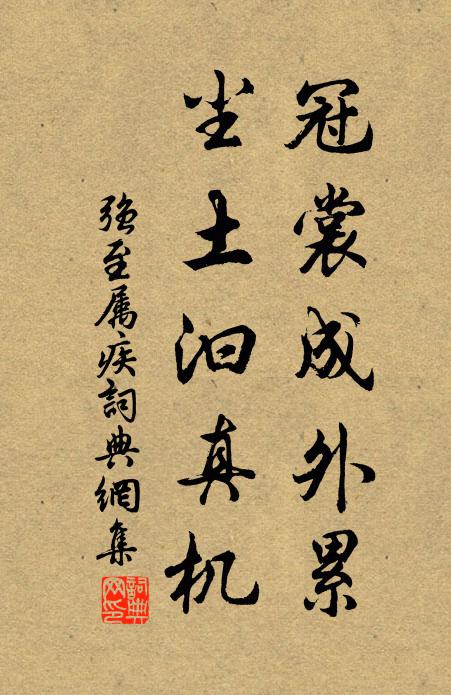 冠裳成外累
尘土汩真机
强至属疾詞典網集
詞典网印